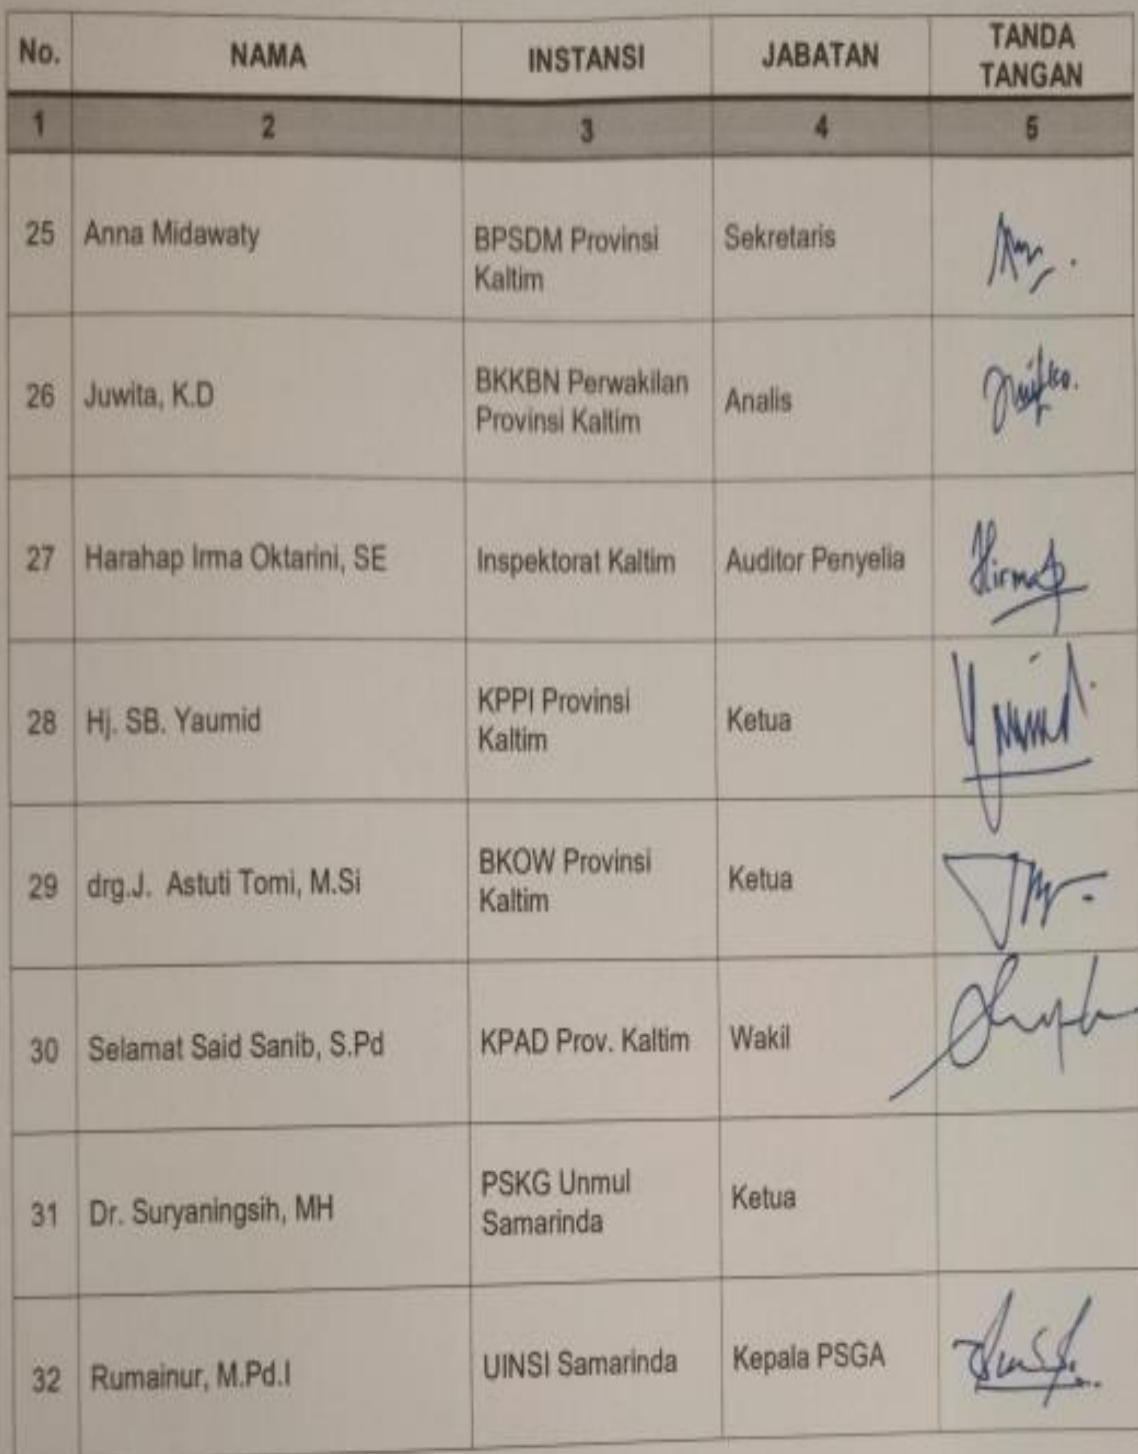 No. NAMA INSTANSI JABATAN TANDA TANGAN
1 2 3 4 5
25 Anna Midawaty BPSDM Provinsi Kaltim Sekretaris
26 Juwita, K.D BKKBN Perwakilan Provinsi Kaltim Analis
27 Harahap Irma Oktarini, SE Inspektorat Kaltim Auditor Penyelia
28 Hj. SB. Yaumid KPPI Provinsi Kaltim Ketua
29 drg.J. Astuti Tomi, M.Si BKOW Provinsi Kaltim Ketua
30 Selamat Said Sanib, S.Pd KPAD Prov. Kaltim Wakil
31 Dr. Suryaningsih, MH PSKG Unmul Samarinda Ketua
32 Rumainur, M.Pd.I UINSI Samarinda Kepala PSGA